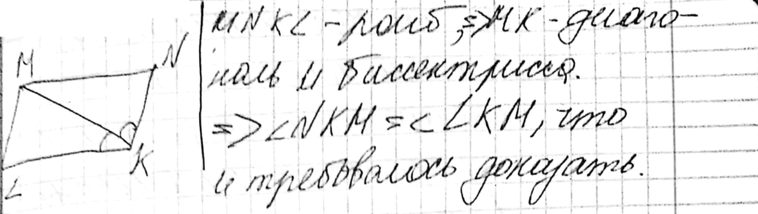 M N
L K
MNKL - ромб, => MK - диаго-
наль и биссектрисса.
=> <NKM = <LKM, что
и требывалось доказать.